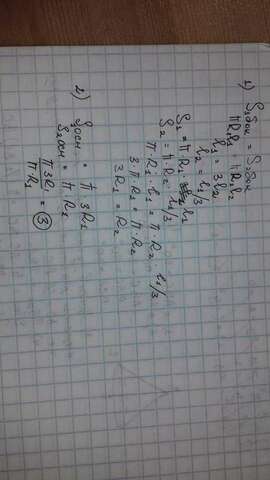 1) S₁бок = S₂бок
πR₁l₁ = πR₂l₂
l₁ = 3l₂
l₂ = l₁/3
S₁ = π·R₁· l₁
S₂ = π·R₂· l₁/3
π·R₁·l₁ = π·R₂ l₁/3
3·π·R₁ = π·R₂
3R₁ = R₂
2) Sосн. = π 3R₁
S₂осн = π R₁
π 3R₁ / π·R₁ = 3